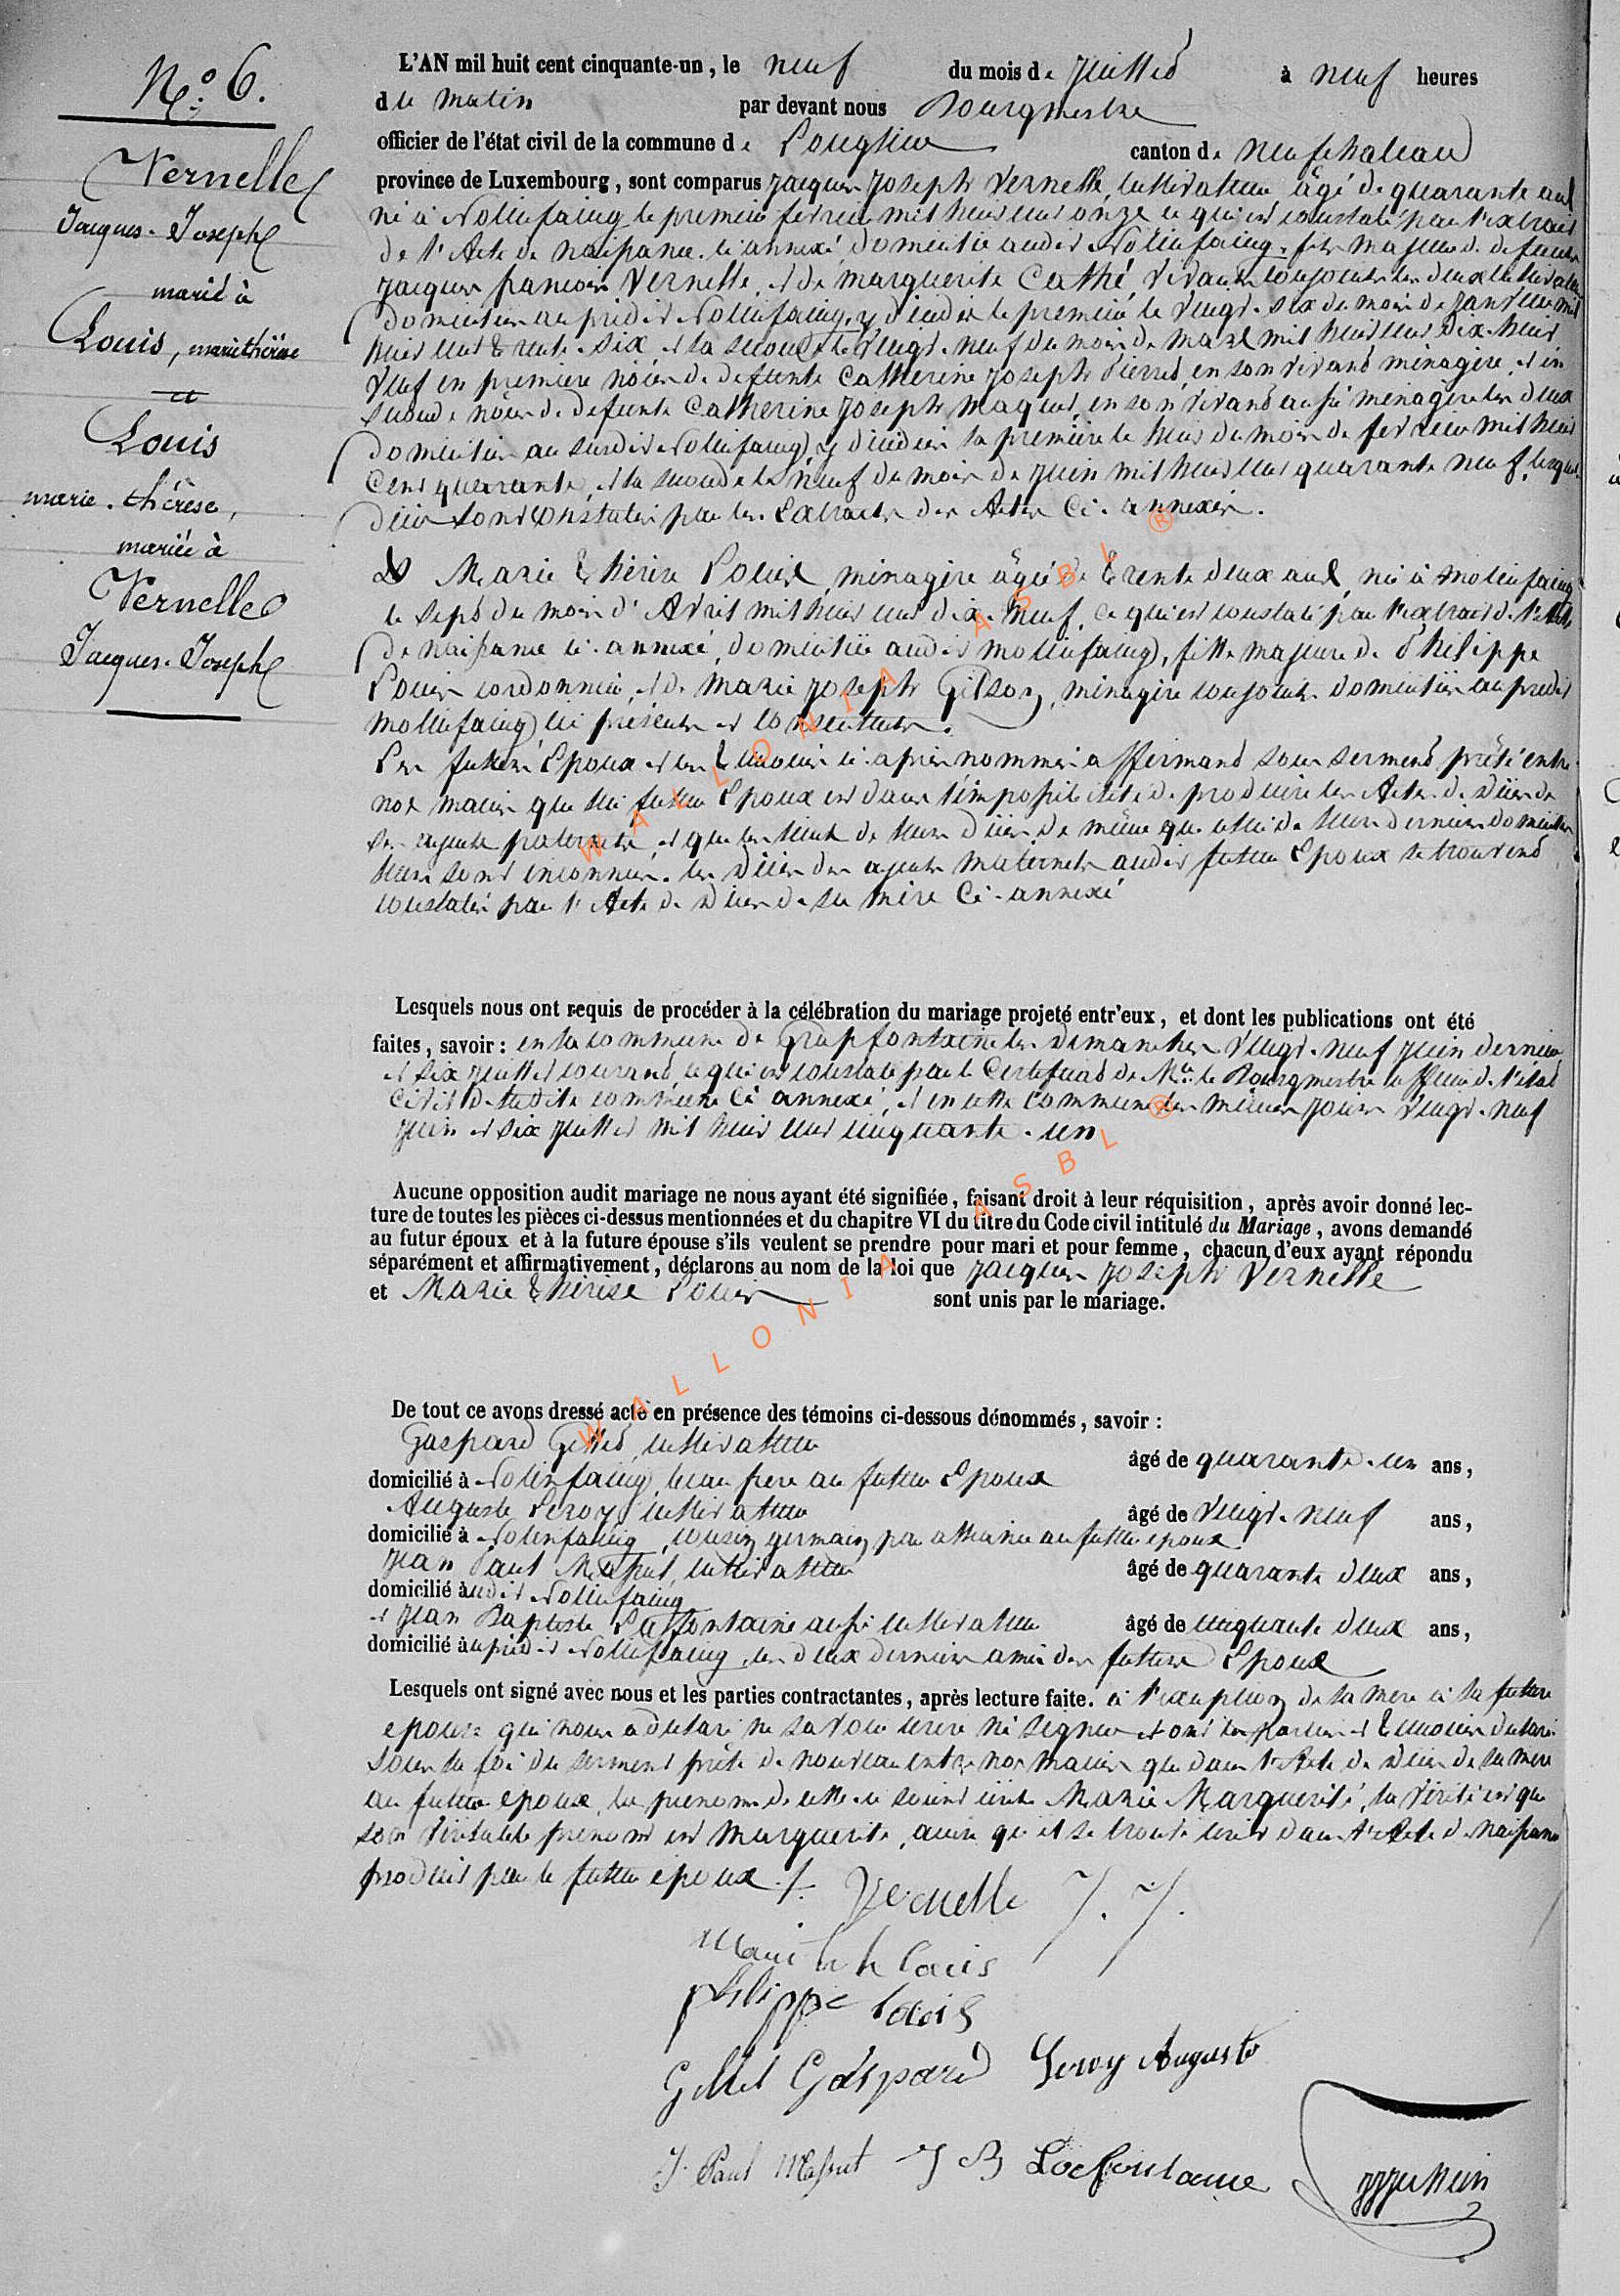 N.° 6.
Vernelle
Jacques-Joseph
marié à
Louis, marie thérèse
et
Louis
marie-thérèse,
mariée à
Vernelle
Jacques-Joseph
L'AN mil huit cent cinquante-un, le neuf du mois de Juillet à neuf heures
du matin par devant nous Bourgmestre
officier de l'état civil de la commune de Longlier canton de neufchateau
province de Luxembourg, sont comparus Jacques Joseph Vernelle, cultivateur âgé de quarante ans
né à Molinfaing le premier février mil huit cent onze ce qui est constaté par l'extrait
de l'Acte de naissance ci-annexé, domicilié audit Molinfaing, fils majeur de defunts
Jacques francois Vernelle, et de Marguerite Cathé, vivants toujours les deux cultivateurs
domiciliés au prédit Molinfaing, y décédés le premier le vingt-six du mois de Janvier mil
huit cent trente-six, et la seconde le vingt-neuf du mois de mars mil huit cent dix-huit
veuf en premiere noces de defunte Catherine Joseph Pierret, en son vivant menagère, et en
seconde noces de defunte Catherine Joseph Maquet, en son vivant aussi menagère les deux
domiciliés au susdit Molinfaing, y décédées la première le huit du mois de fevrier mil huit
cent quarante, et la seconde le neuf du mois de Juin mil huit cent quarante neuf, lesquels
décès sont constatés par les Extraits des Actes Ci-annexés.
Et Marie Thérèse Louis, ménagère âgée de trente deux ans, née à Molinfaing
le sept du mois d'Avril mil huit cent dix-neuf, ce qui est constaté par l'extrait de l'Acte
de naissance ci-annexé, domiciliée audit Molinfaing, fille majeure de Philippe
Louis cordonnier, et de Marie Joseph Gilson, ménagère toujours domiciliés au predit
Molinfaing ici présents et consentants.
Les futurs Epoux et les témoins ci-après nommés affirmant sous serment prêté entre
nos mains que le futur Epoux est dans l'impossibilité de produire les Actes de décès de
ses ayeuls paternels, et que les lieux de leurs décès de même que celui de leurs derniers domiciles
leurs sont inconnus. les décès des ayeuls maternels audit futur Epoux se trouvent
constatés par l'Acte de décès de sa mère Ci-annexé
Lesquels nous ont requis de procéder à la célébration du mariage projeté entr'eux, et dont les publications ont été
faites, savoir : en la commune de Grapfontaine les Dimanches vingt-neuf Juin dernier
et six Juillet courant, ce qui est constaté par le Certificat de Mr. le Bourgmestre officier de l'état
Civil de ladite commune Ci annexé, et en cette commune les mêmes jours vingt-neuf
Juin et six Juillet mil huit cent cinquante-un
Aucune opposition audit mariage ne nous ayant été signifiée, faisant droit à leur réquisition, après avoir donné lec-
ture de toutes les pièces ci-dessus mentionnées et du chapitre VI du titre du Code civil intitulé du Mariage, avons demandé
au futur époux et à la future épouse s'ils veulent se prendre pour mari et pour femme, chacun d'eux ayant répondu
séparément et affirmativement, déclarons au nom de la loi que Jacques Joseph Vernelle
et Marie Thérèse Louis sont unis par le mariage.
De tout ce avons dressé acte en présence des témoins ci-dessous dénommés, savoir :
Gaspard Gillet, cultivateur âgé de quarante-un ans,
domicilié à Molinfaing, beau frere au futur Epoux
Auguste Leroy cultivateur âgé de vingt-neuf ans,
domicilié à Molinfaing, cousin germain par alliance au futur epoux
Jean Paul Massut, cultivateur âgé de quarante deux ans,
domicilié audit Molinfaing
et Jean Baptiste Laffontaine aussi cultivateur âgé de cinquante deux ans,
domicilié au prédit Molinfaing, les deux derniers amis des futurs Epoux
Lesquels ont signé avec nous et les parties contractantes, après lecture faite. à l'exception de la mere à la future
epouse qui nous a déclaré ne savoir écrire ni signer et ont les parties et témoins déclaré
sous la foi du serment prêté de nouveau entre nos mains que dans l'Acte de décès de la mere
au futur epoux, les prenoms de cette-ci soient écrits Marie Marguerite, la vérité est que
son véritable prenom est Marguerite, ainsi qu'il se trouve écrit dans l'Acte de Naissance
produit par le futur epoux ./.
Vernelle J. J.
Marie th Louis
philippe Louis
Gillet Gaspard Leroy Auguste
J. Paul Massut J B Laffontaine
WALLONIA ASBL ®
WALLONIA ASBL ®